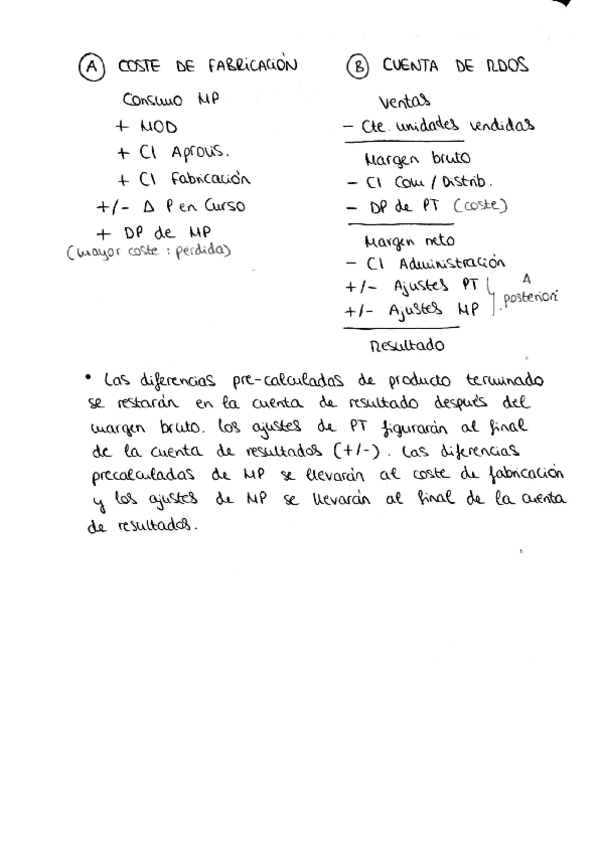 A COSTE DE FABRICACIÓN
Consumo MP
+ MOD
+ CI Aprovis.
+ CI Fabricación
+/- Δ P en Curso
+ DP de MP
(mayor coste : perdida)
B CUENTA DE RDOS
Ventas
- Cte. unidades vendidas
Margen bruto
- CI Com / Distrib.
- DP de PT (coste)
Margen neto
- CI Administración
+/- Ajustes PT
+/- Ajustes MP
A posteriori
Resultado
• Las diferencias pre-calculadas de producto terminado
se restarán en la cuenta de resultado después del
margen bruto. Los ajustes de PT figurarán al final
de la cuenta de resultados (+/-). Las diferencias
precalculadas de MP se llevarán al coste de fabricación
y los ajustes de MP se llevarán al final de la cuenta
de resultados.